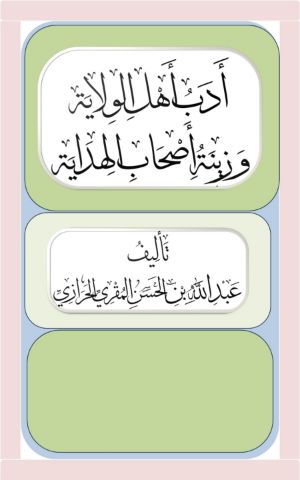 أَدَبُ أَهْلِ الوِلايَة
وَزِينَةُ أَصْحَابِ الهِدَايَة
تَألِيفُ
عَبدِ اللهِ بنِ الحَسَنِ المُقرِي الحَرَازِي